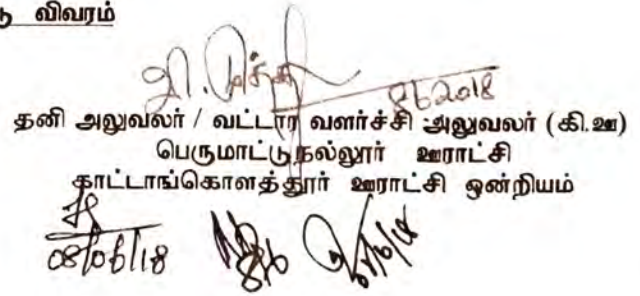 விவரம்
8.6.2018
தனி அலுவலர் / வட்டார வளர்ச்சி அலுவலர் (கி.ஊ)
பெருமாட்டுநல்லூர் ஊராட்சி
காட்டாங்கொளத்தூர் ஊராட்சி ஒன்றியம்
08/06/18